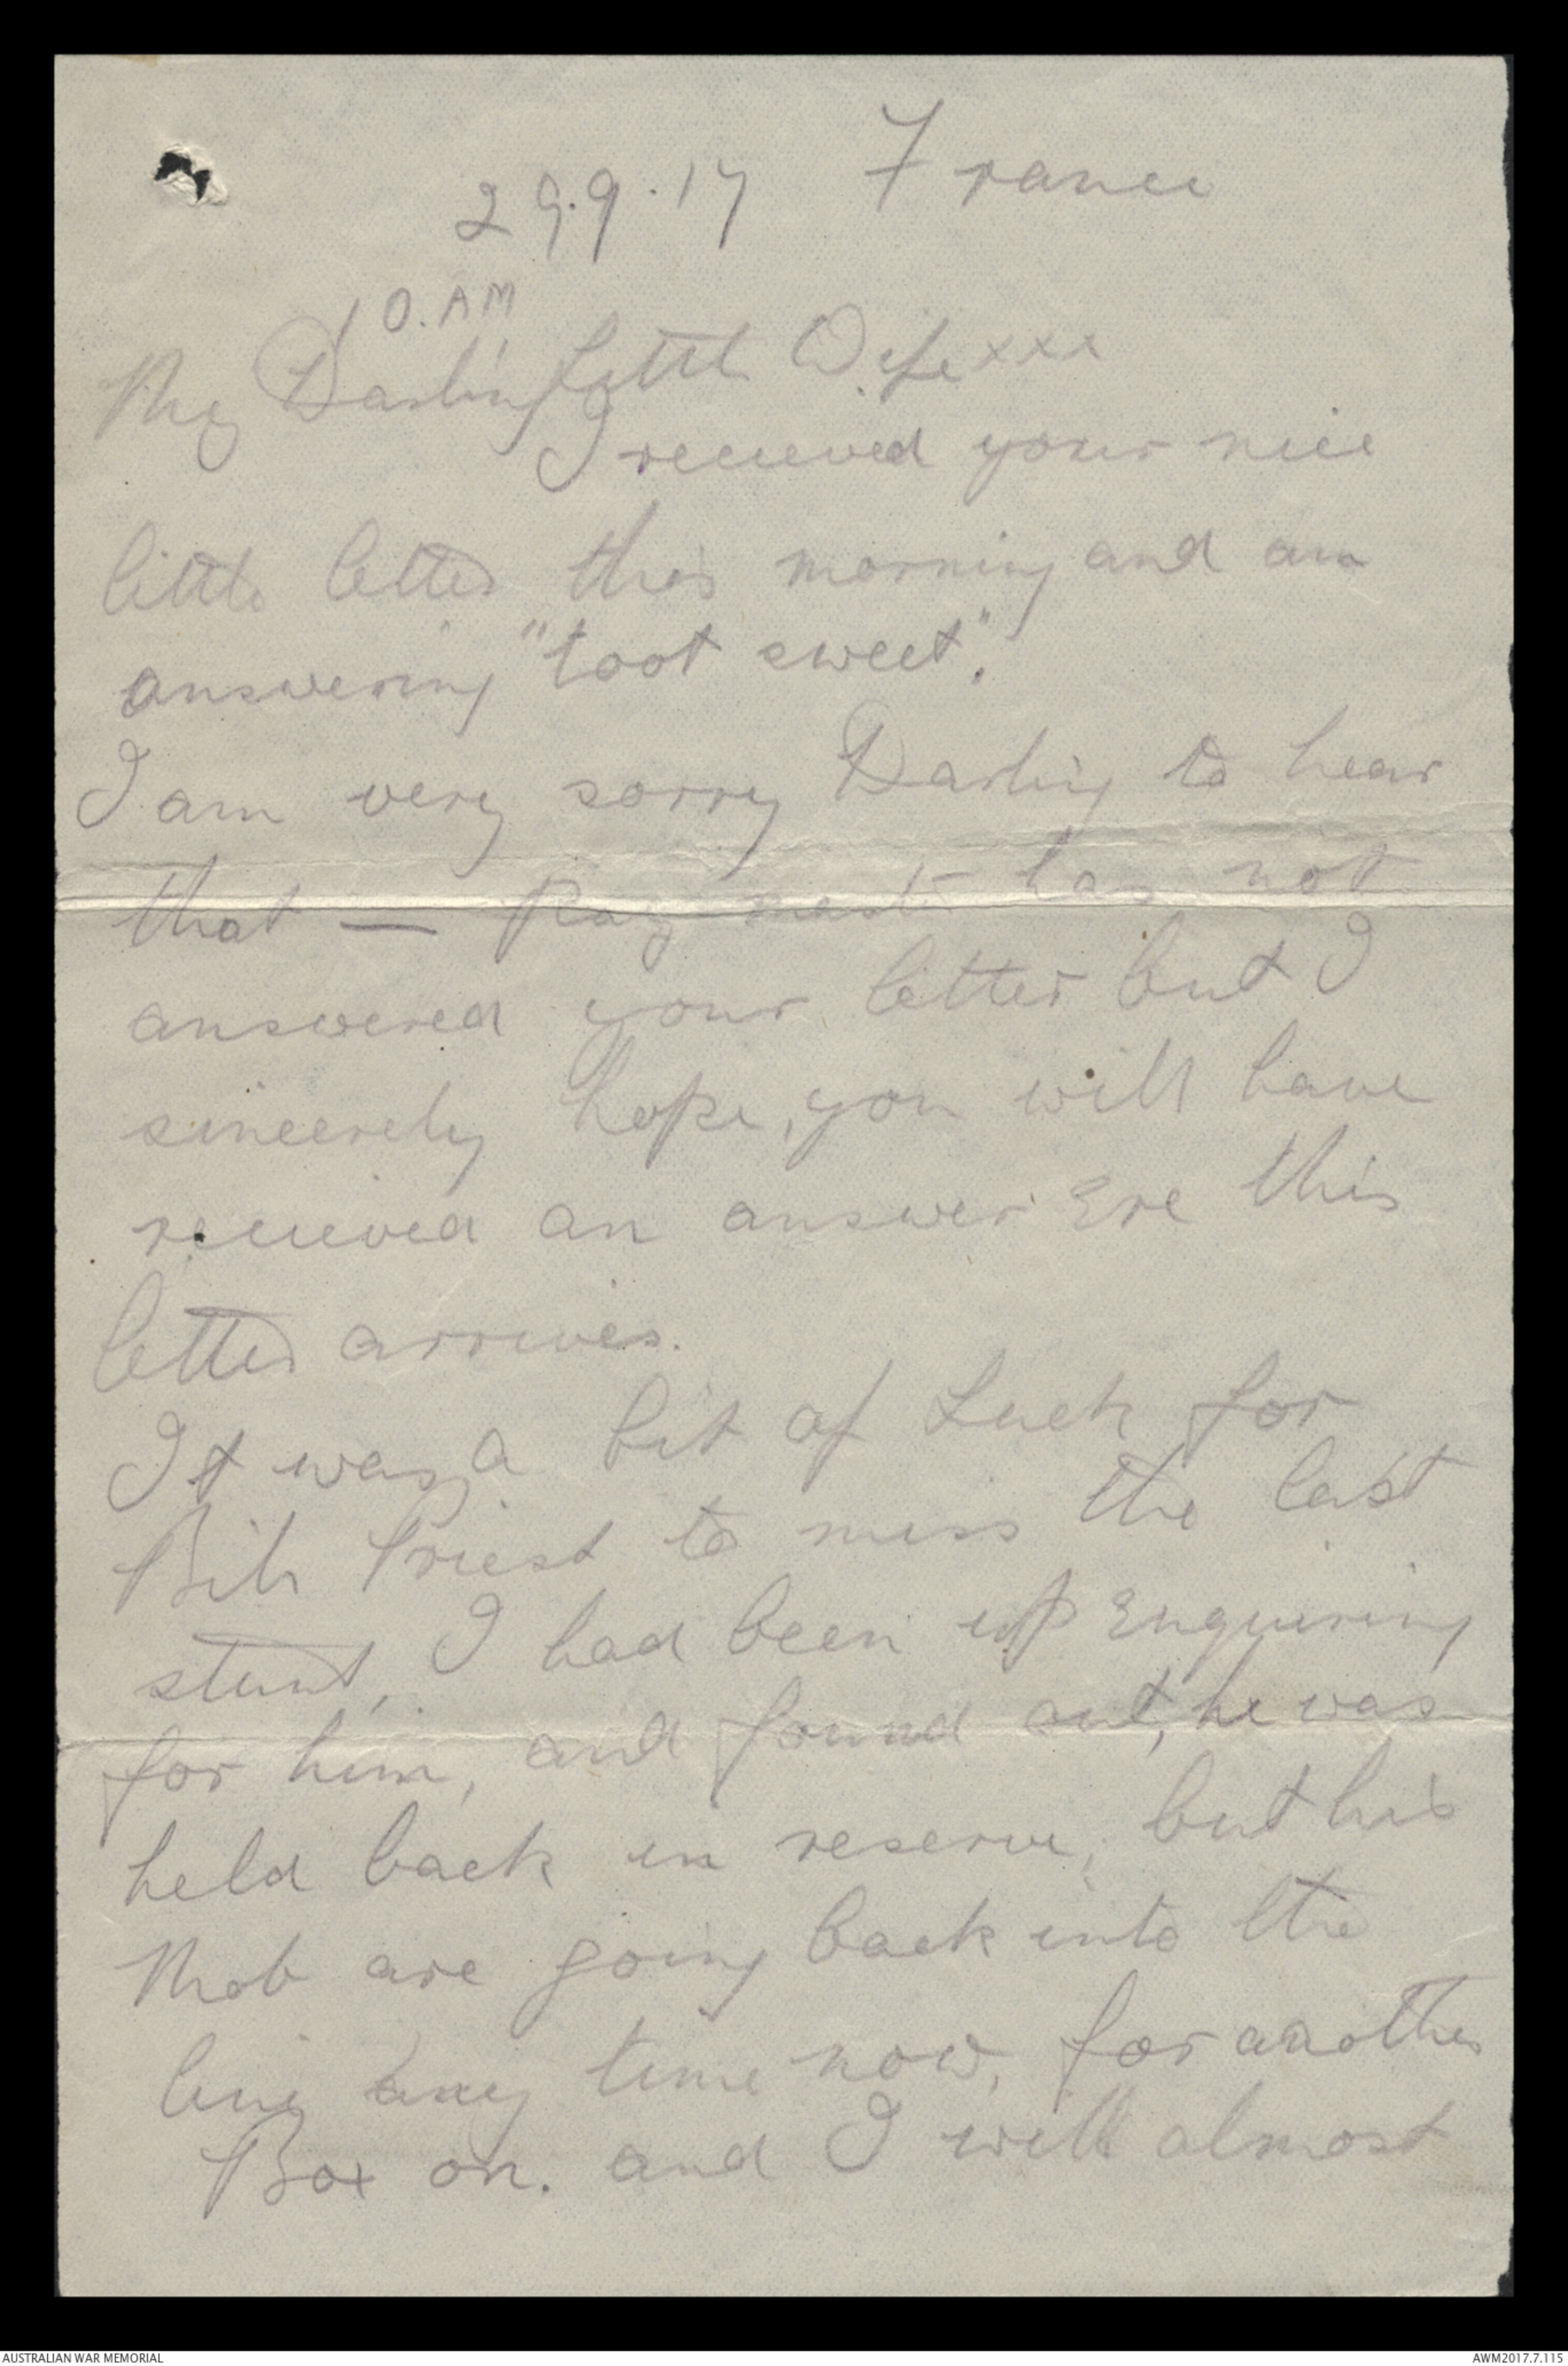 29.9.17 France
10.AM
My Darling Little Wife xxx
I received your nice
little letter this morning and am
answering "toot sweet".
I am very sorry Darling to hear
that — Pay has not
answered your letter but I
sincerely hope, you will have
received an answer Ere this
letter arrives.
It was a bit of Luck for
Priest to miss the last
stunt, I had been up Enquiring
for him, and found out, he was
held back in reserve, but his
Mob are going back into the
line any time now, for another
Box on. and I will almost
AUSTRALIAN WAR MEMORIAL
AWM2017.7.115